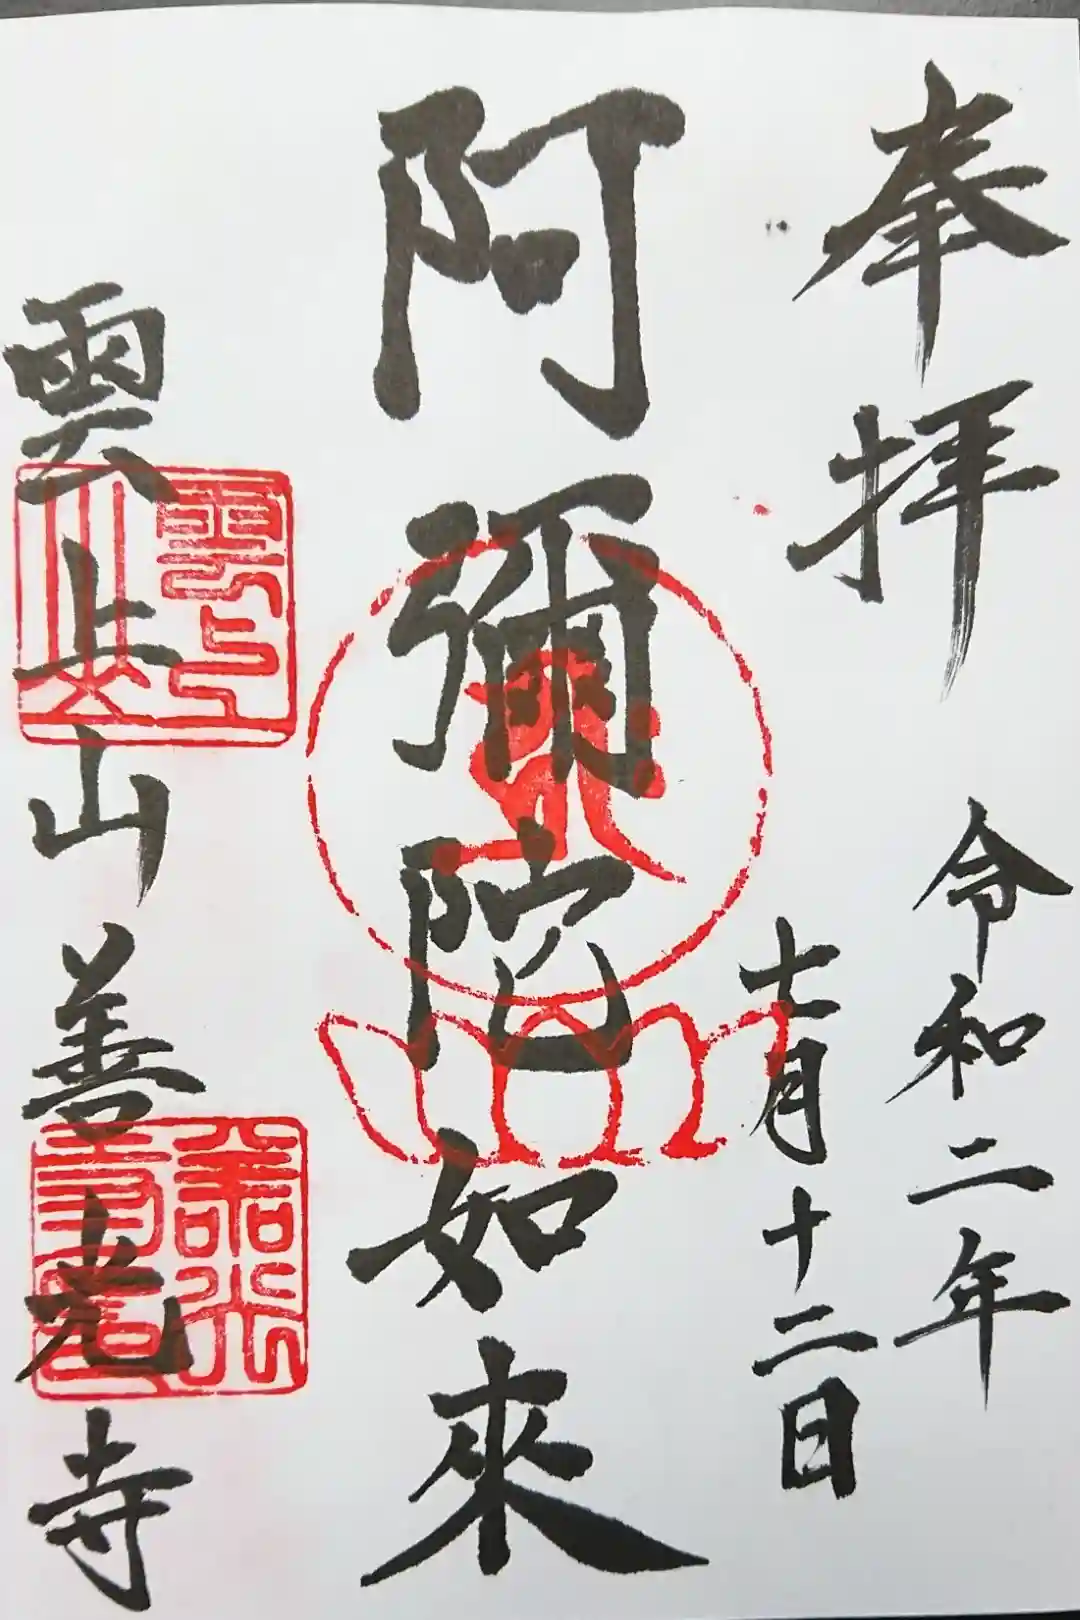 奉拝
令和二年
七月十二日
阿彌陀如來
雲上山善光寺
雲上山